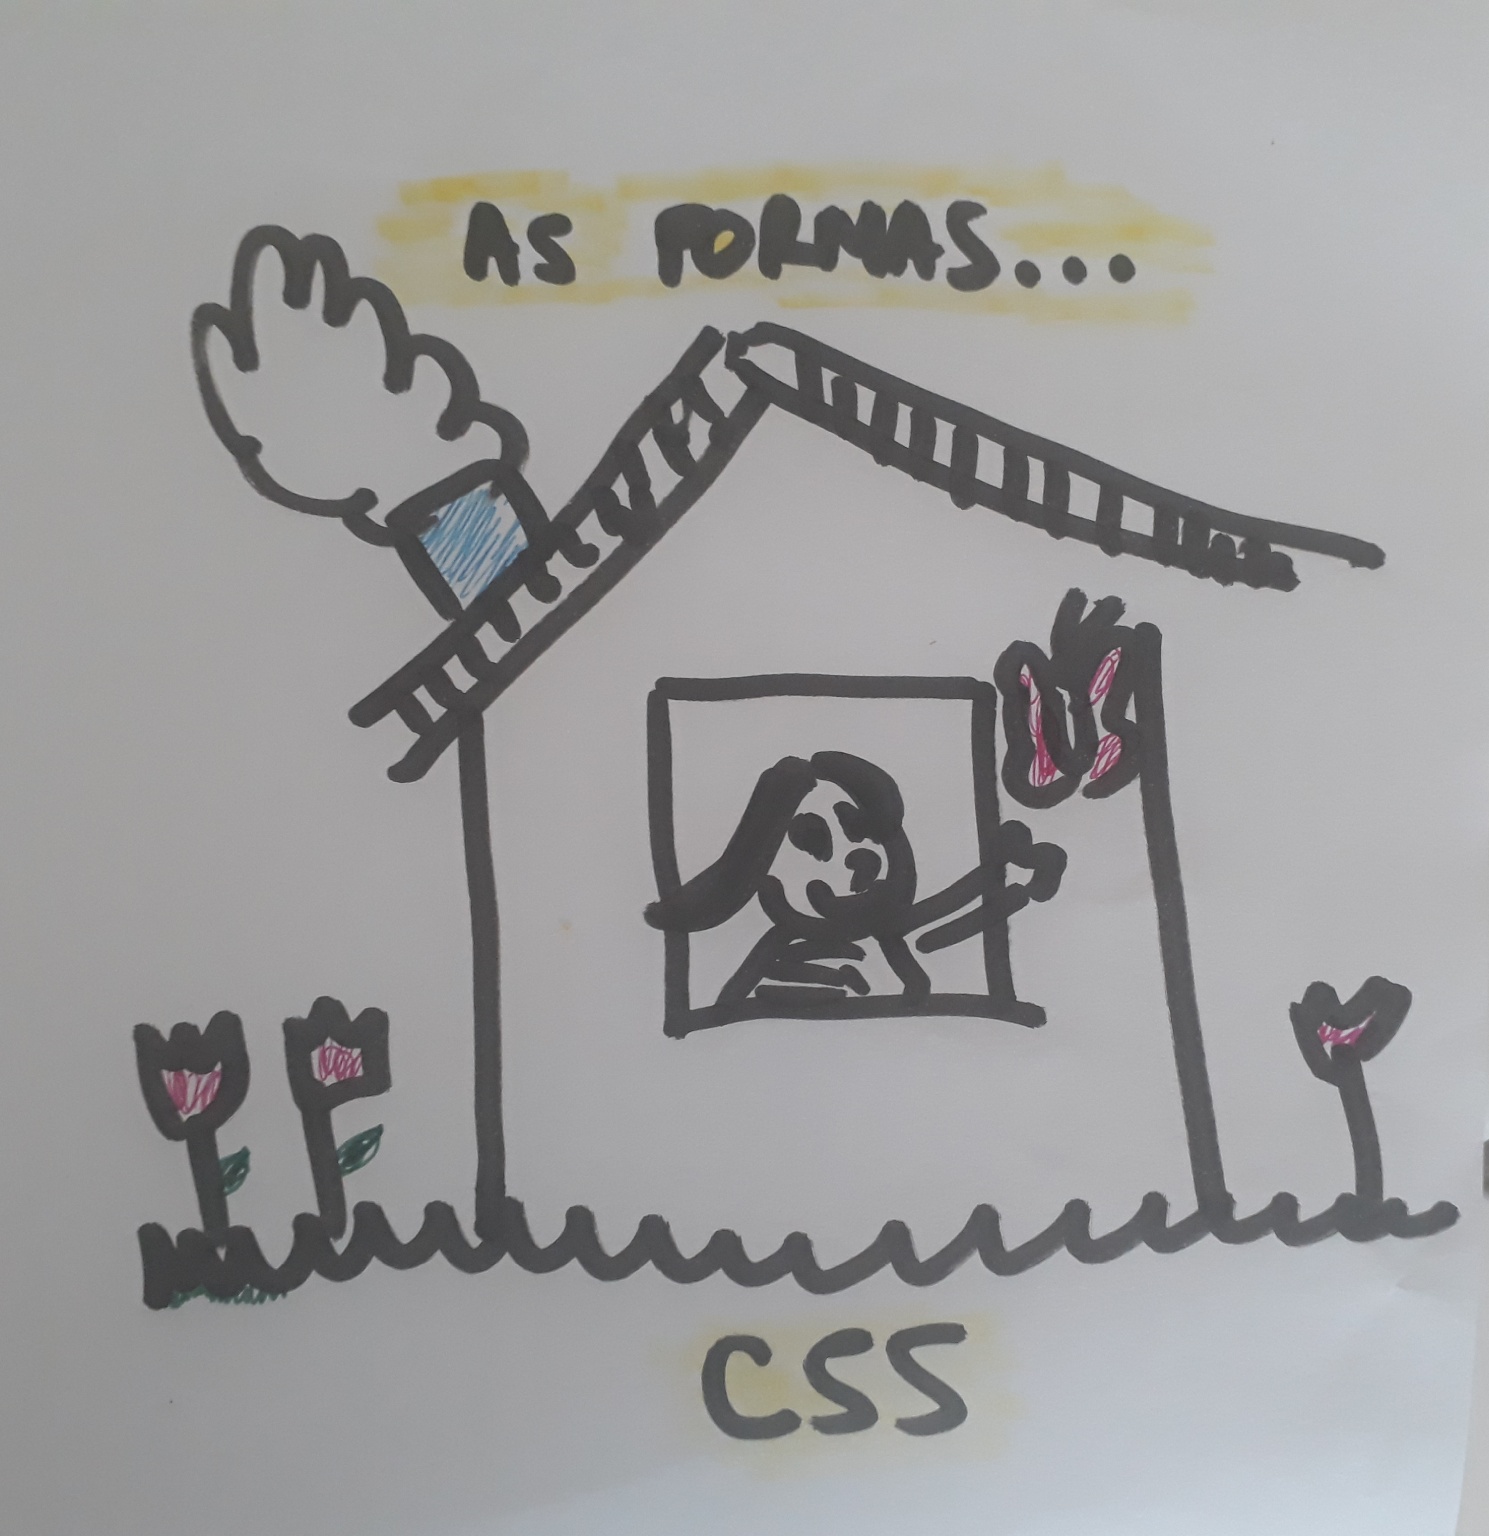 AS FORMAS...
CSS